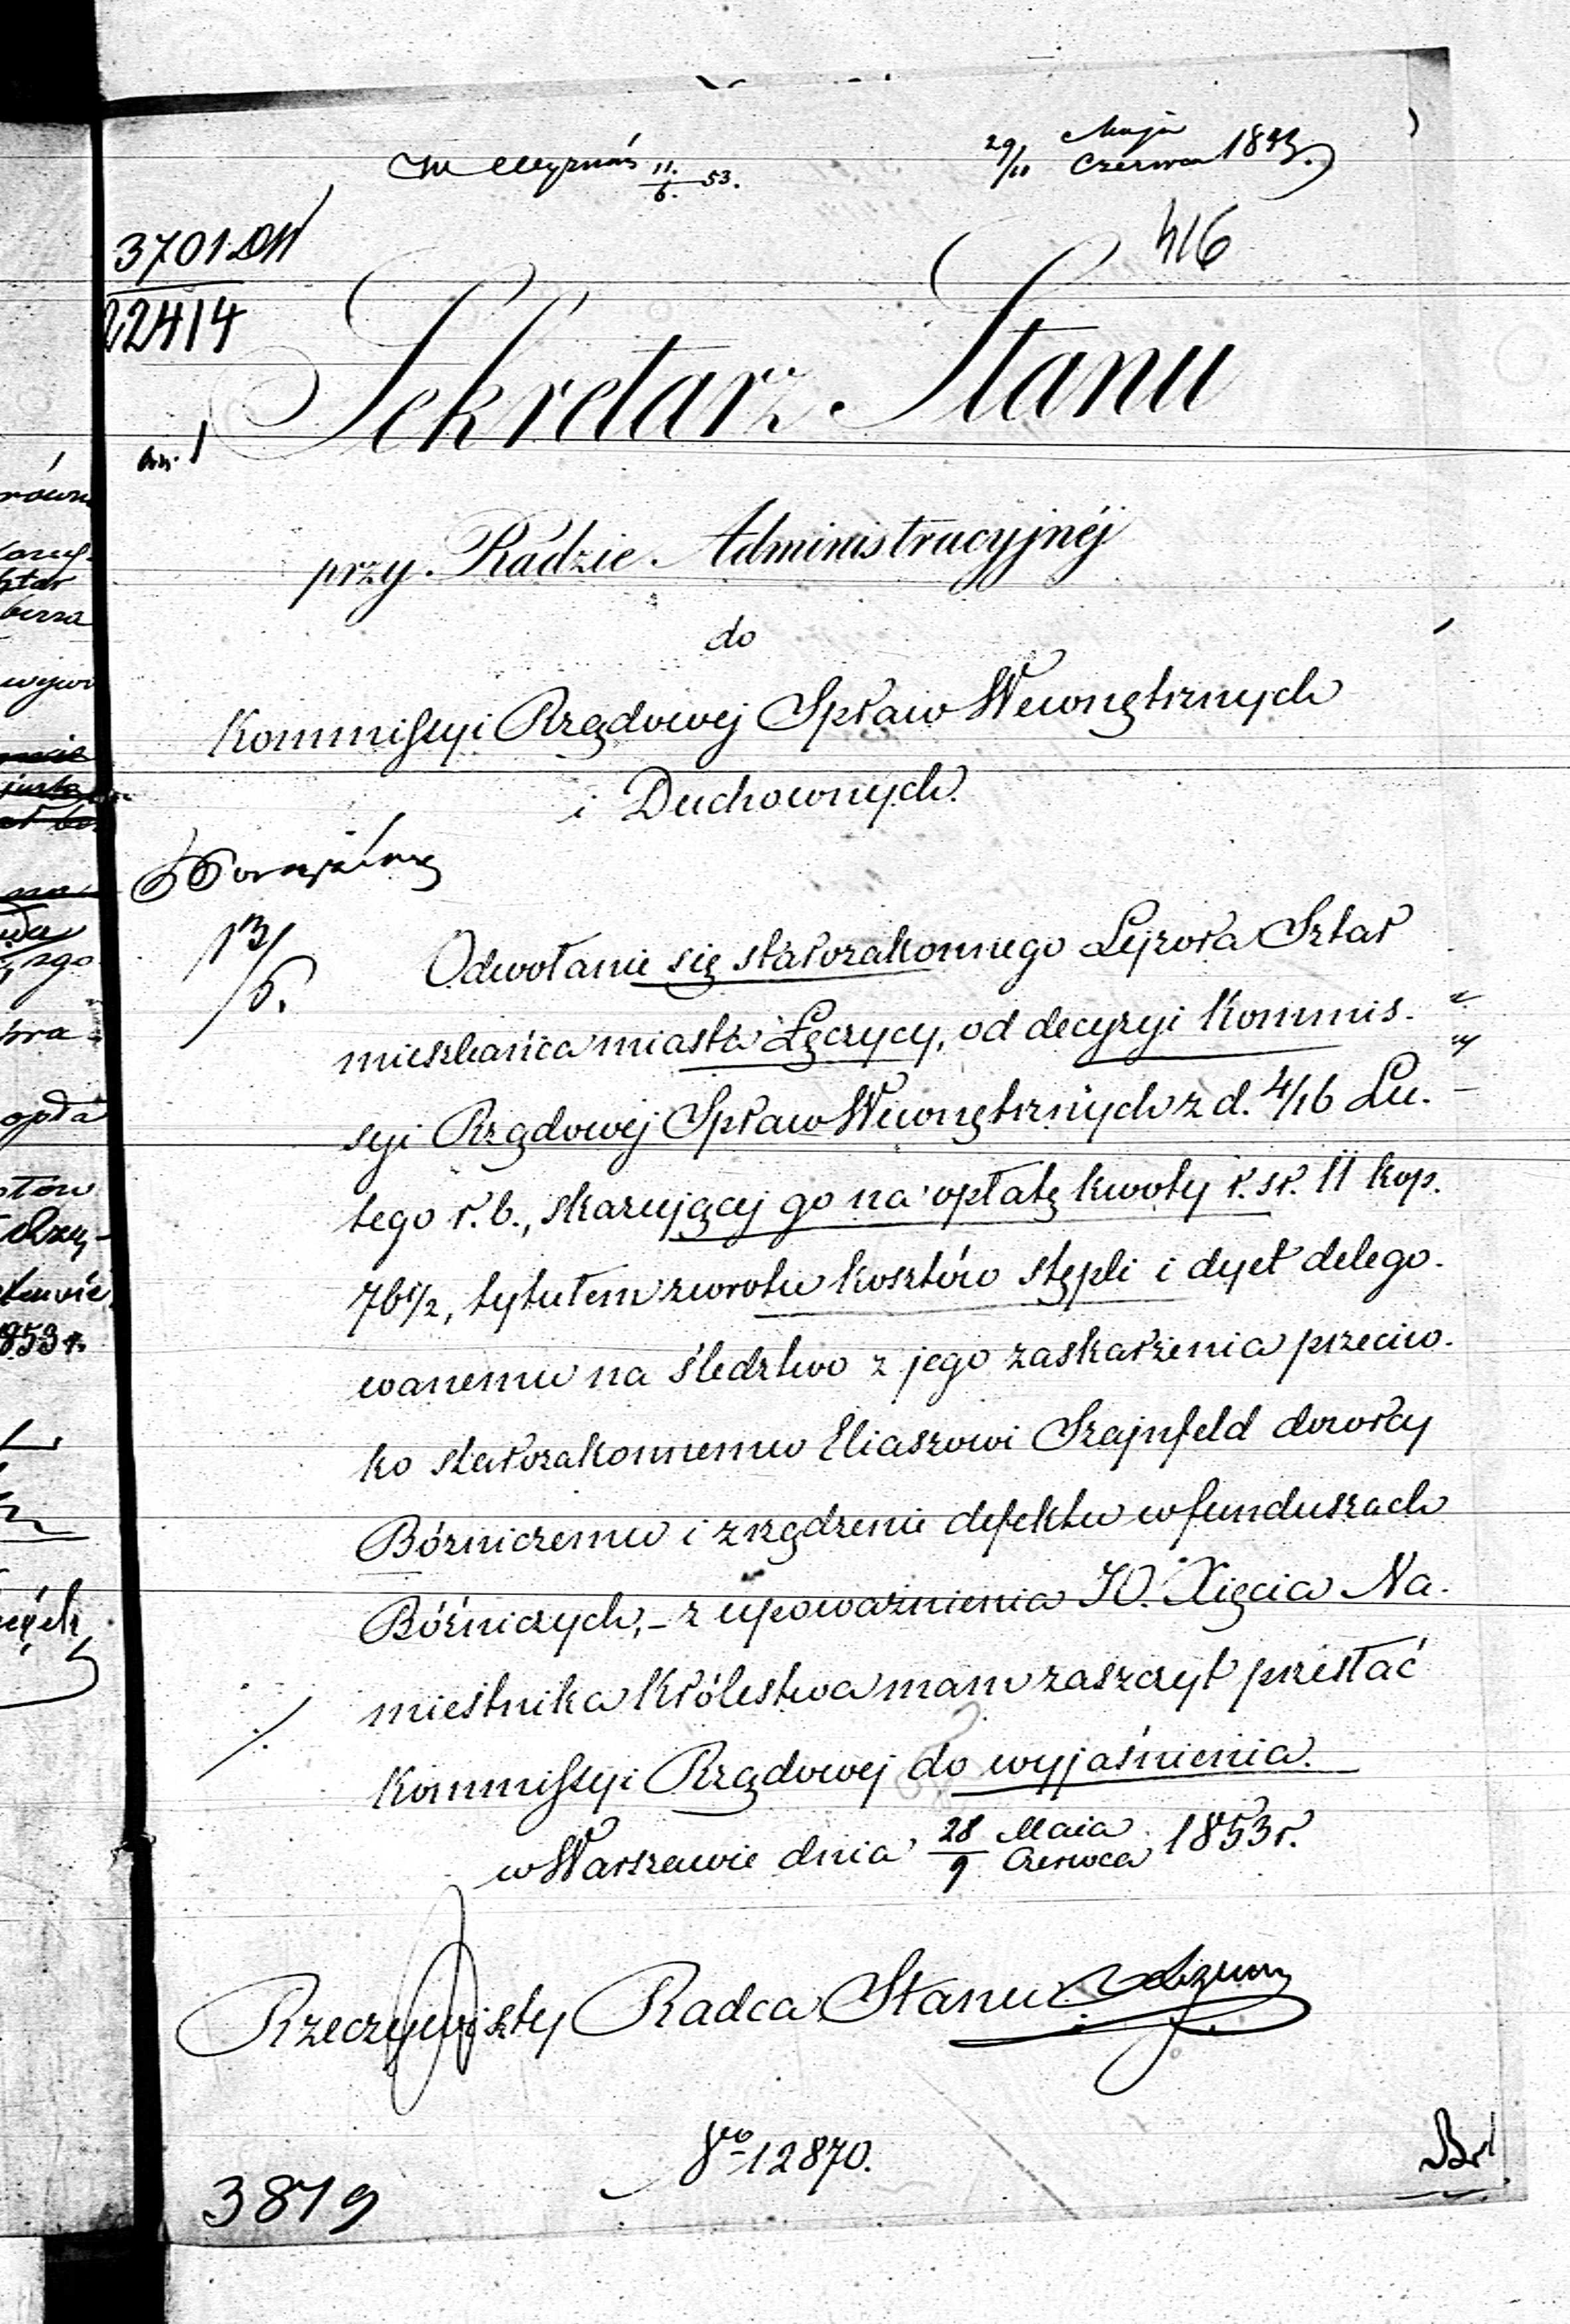 11/6 53.
29/11 Maja Czerwca 1853.
416
3701
22414
Sekretarz Stanu
przy Radzie Administracyjnéj
do
Kommissyi Rządowej Spraw Wewnętrznych
i Duchownych.
13/6.
Odwołanie się starozakonnego Lejzora Sztar
mieszkańca miasta Łęczycy, od decyzyi Kommis-
syi Rządowej Spraw Wewnętrznych z d. 4/16 Lu-
tego r. b., skazującej go na opłatę kwoty r. sr. 11 kop.
76 1/2, tytułem zwrotu kosztów stępli i dyet delego-
wanemu na śledztwo z jego zaskarżenia przeciw-
ko starozakonnemu Eliaszowi Szajnfeld dozorcy
Bóźniczemu i zrządzenie defektu w funduszach
Bóźniczych, - z upoważnienia JO. Xięcia Na-
miestnika Królestwa mam zaszczyt przesłać
Kommissyi Rządowej do wyjaśnienia.
w Warszawie dnia 28/9 Maia/Czerwca 1853 r.
Rzeczywisty Radca Stanu
No 12870.
3819